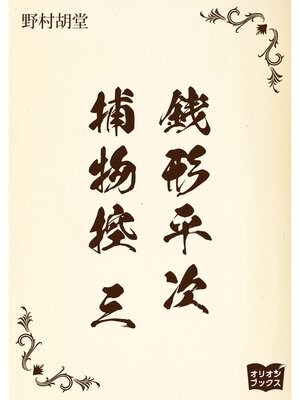 野村胡堂
銭形平次
捕物控 三
オリオン
ブックス